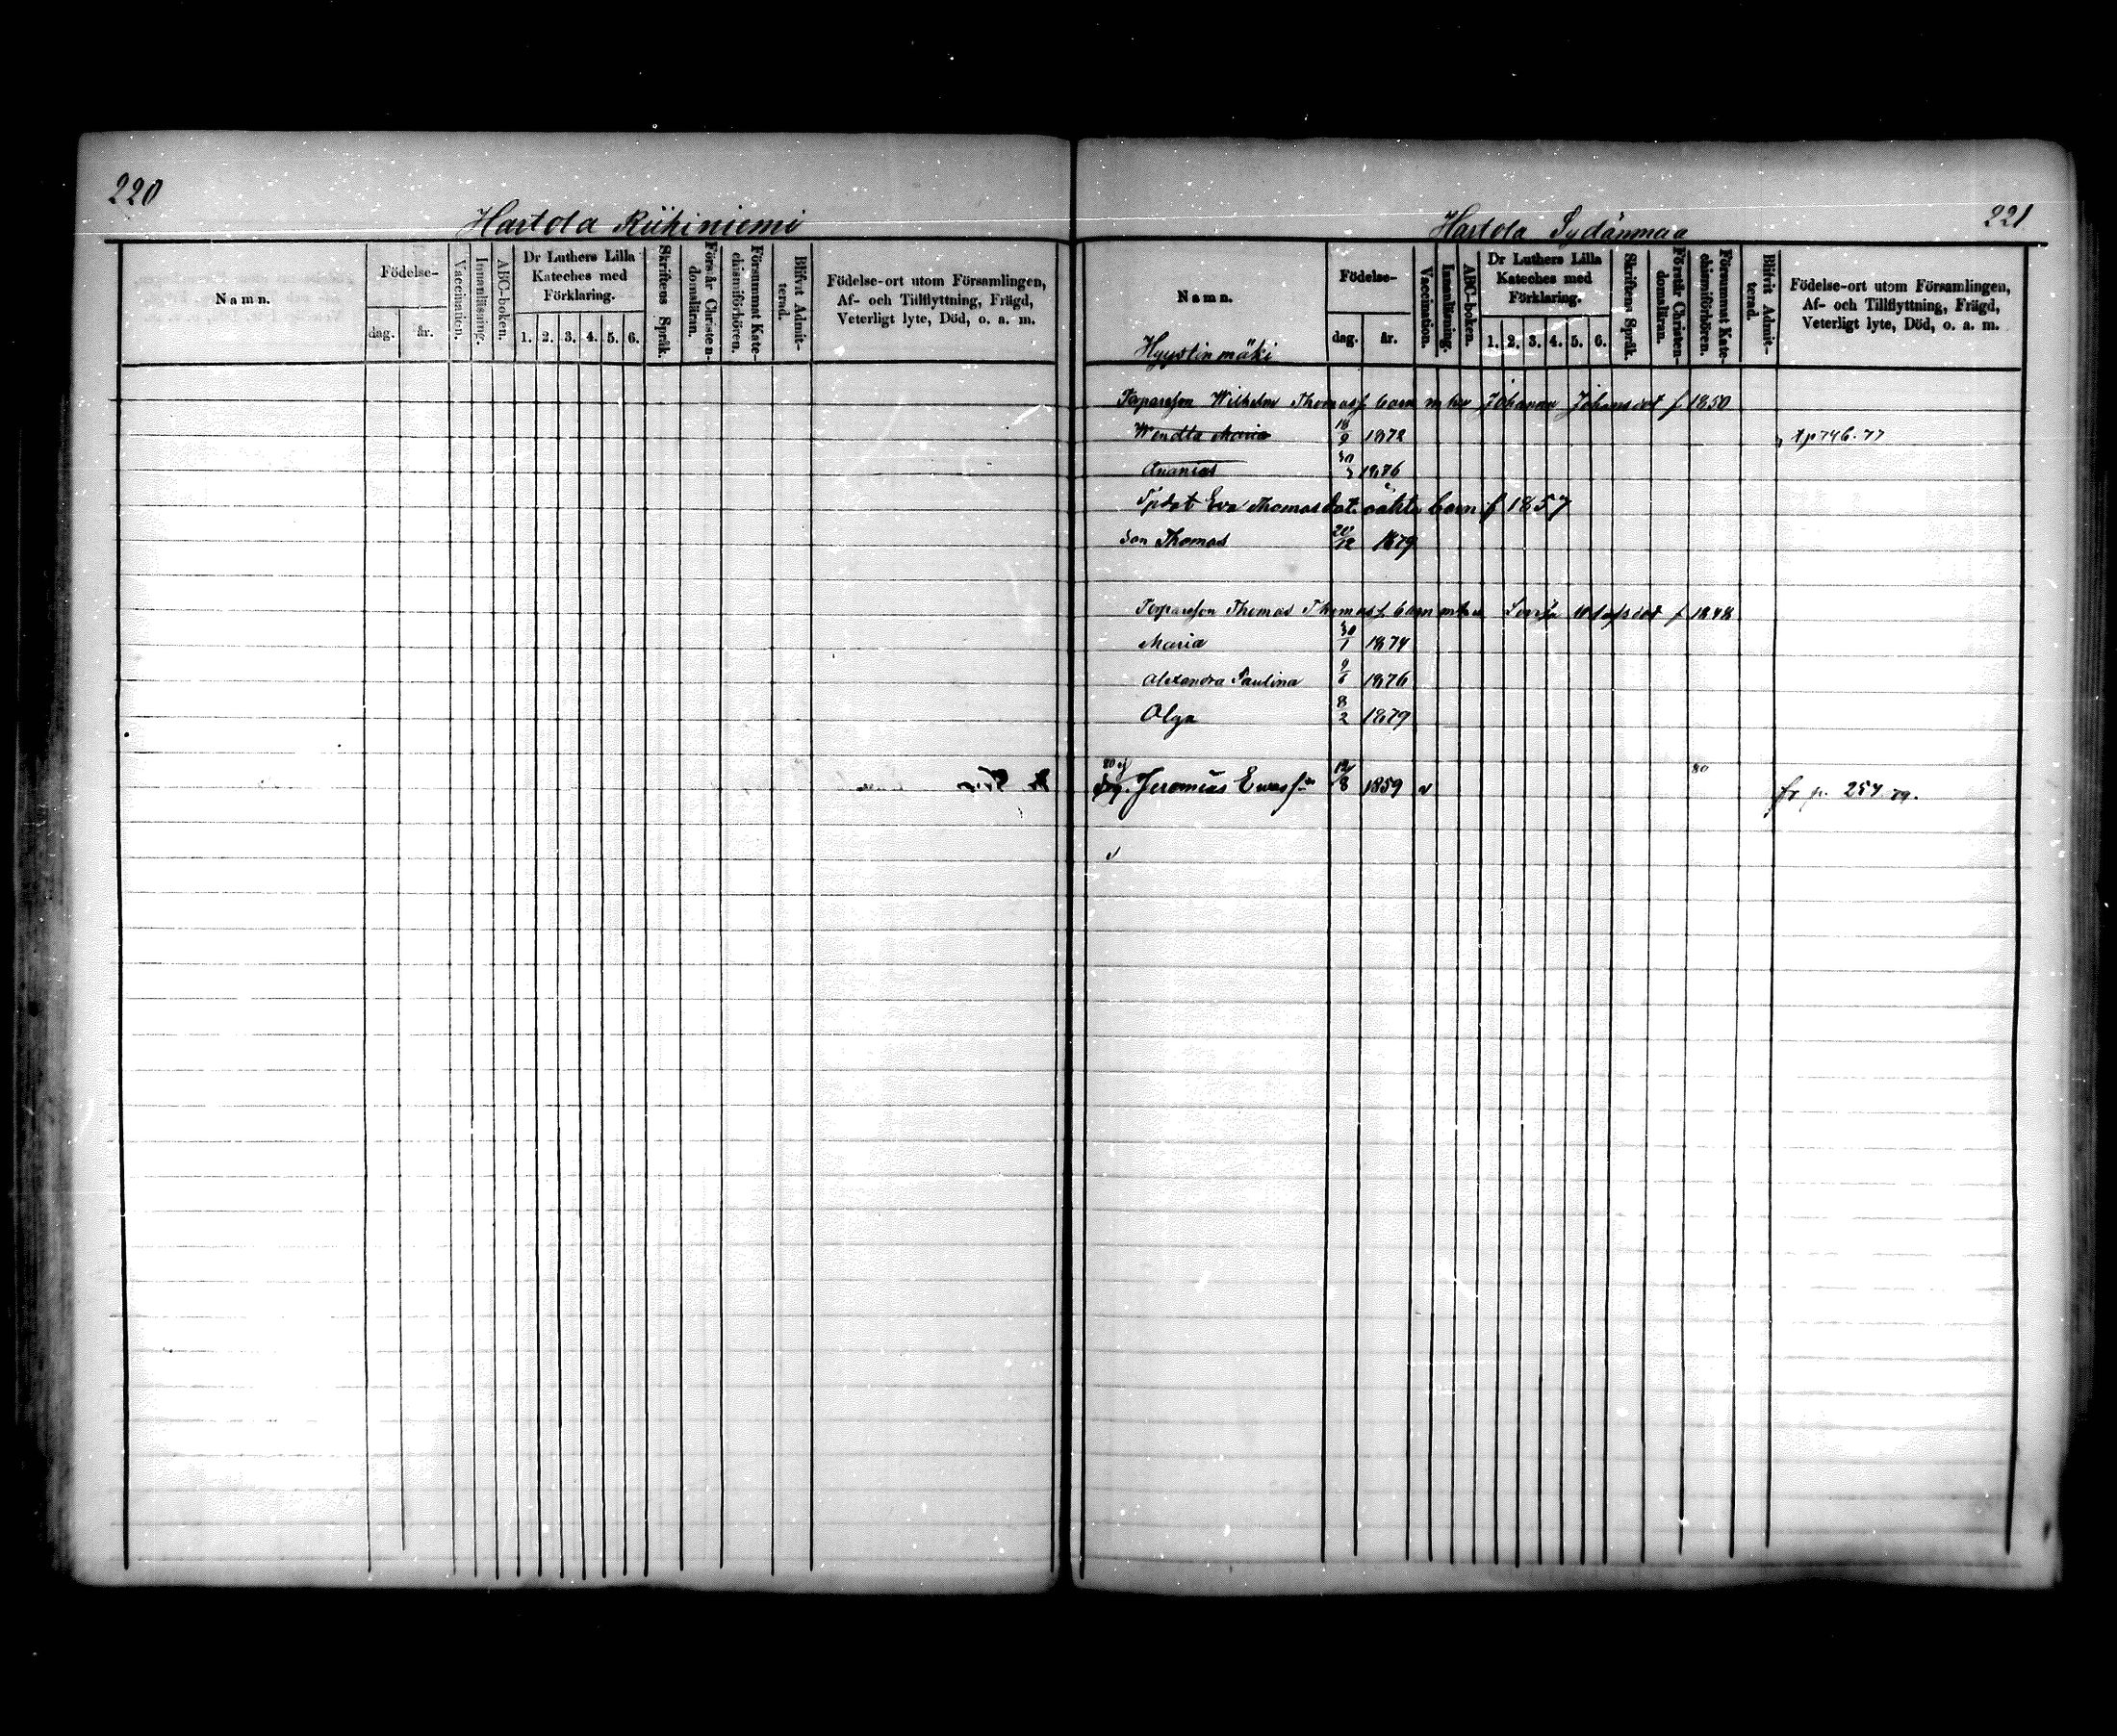 220
Hartola Riihiniemi
Namn.
Födelse-
dag.
år.
Vaccination.
Innanläsning.
ABC-boken.
Dr Luthers Lilla
Kateches med
Förklaring.
1. 2. 3. 4. 5. 6.
Skriftens Språk.
Förstår Christen-
domsläran.
Försummat Kate-
chismiförhören.
Blifvit Admit-
terad.
Födelse-ort utom Församlingen,
Af- och Tillflyttning, Frägd,
Veterligt lyte, Död, o. a. m.
221
Hartola Sydänmaa
Namn.
Födelse-
dag.
år.
Vaccination.
Innanläsning.
ABC-boken.
Dr Luthers Lilla
Kateches med
Förklaring.
1. 2. 3. 4. 5. 6.
Skriftens Språk.
Förstår Christen-
domsläran.
Försummat Kate-
chismiförhören.
Blifvit Admit-
terad.
Födelse-ort utom Församlingen,
Af- och Tillflyttning, Frägd,
Veterligt lyte, Död, o. a. m.
Hyystinmäki
Torpareson Wilhelm Thomass. barn m hu Johanna Johansdot f 1850
Wendla Maria 18/9 1872 tp 746. 77
Ananias 1876
Tpdot Eva Thomasdot. oäkta barn f 1857
Son Thomas 20/12 1879
Torpareson Thomas Thomass. barn m hu Lovisa f 1848
Maria 30/1 1874
Alexandra Paulina 9/6 1876
Olga 8/2 1879
Jeremias Evass:n 12/8 1859 v 80 fr p. 257. 79.